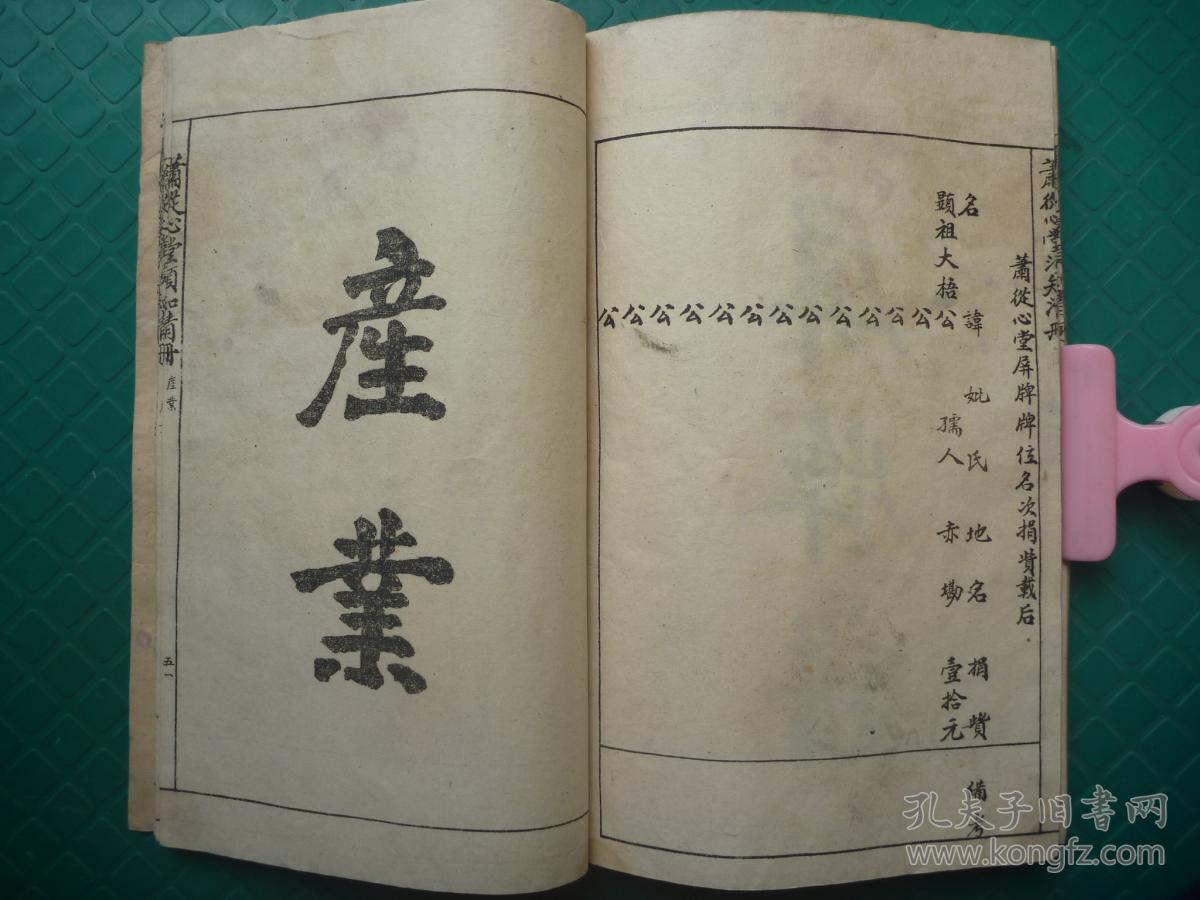 蕭從心堂須知清冊
蕭從心堂屏牌牌位名次捐貲載后
名 諱 妣氏 地名 捐貲 備考
顯祖大梧公 孺人 赤墈 壹拾元
公
公
公
公
公
公
公
公
公
公
公
公
產業
蕭從心堂須知清冊 產業
五一
孔夫子旧书网
www.kongfz.com